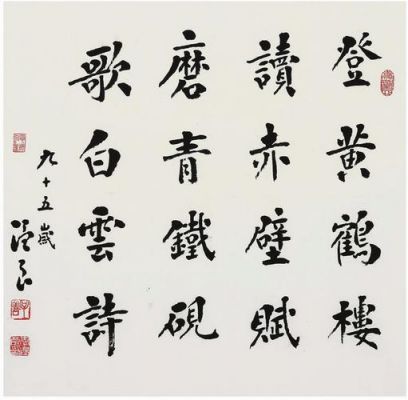 登黃鶴樓
讀赤壁賦
磨青鐵硯
歌白雲詩
九十五歲